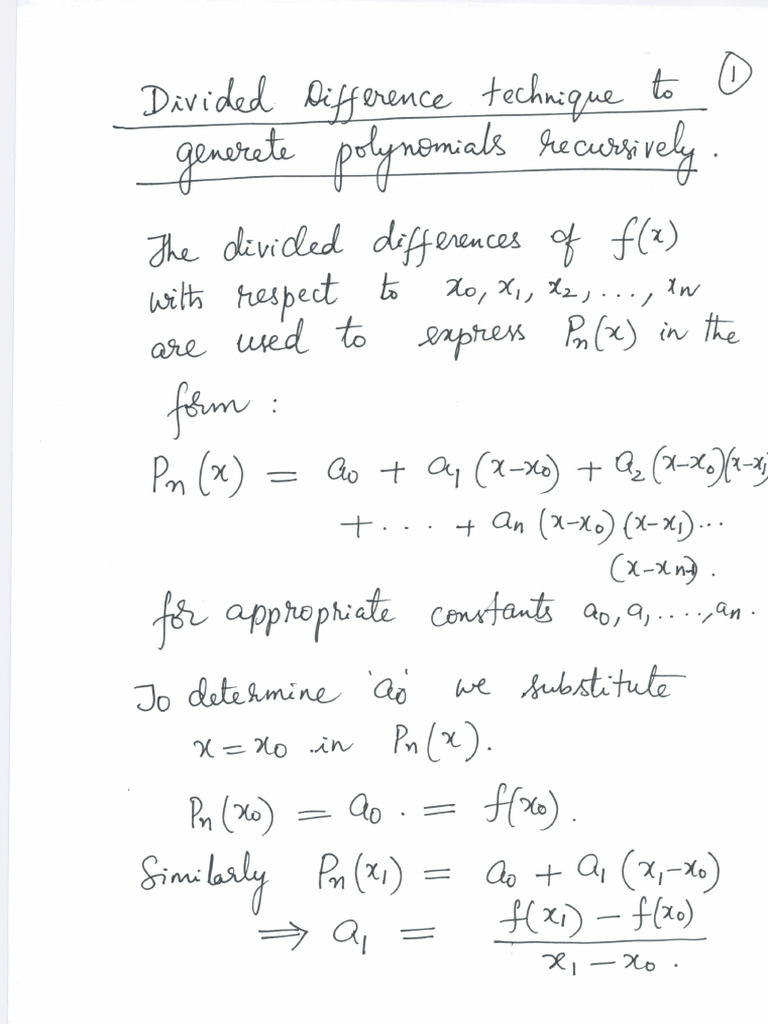 Divided Difference technique to ①
generete polynomials recursively.
The divided differences of f(x)
with respect to x₀, x₁, x₂, ..., xₙ
are used to express Pₙ(x) in the
form :
Pₙ(x) = a₀ + a₁(x-x₀) + a₂(x-x₀)(x-x₁)
+ ... + aₙ(x-x₀)(x-x₁)...
(x-xₙ₋₁).
for appropriate constants a₀, a₁, ...., aₙ.
To determine 'a₀' we substitute
x = x₀ in Pₙ(x).
Pₙ(x₀) = a₀. = f(x₀).
Similarly Pₙ(x₁) = a₀ + a₁(x₁-x₀)
⇒ a₁ = f(x₁) - f(x₀)
x₁ - x₀.